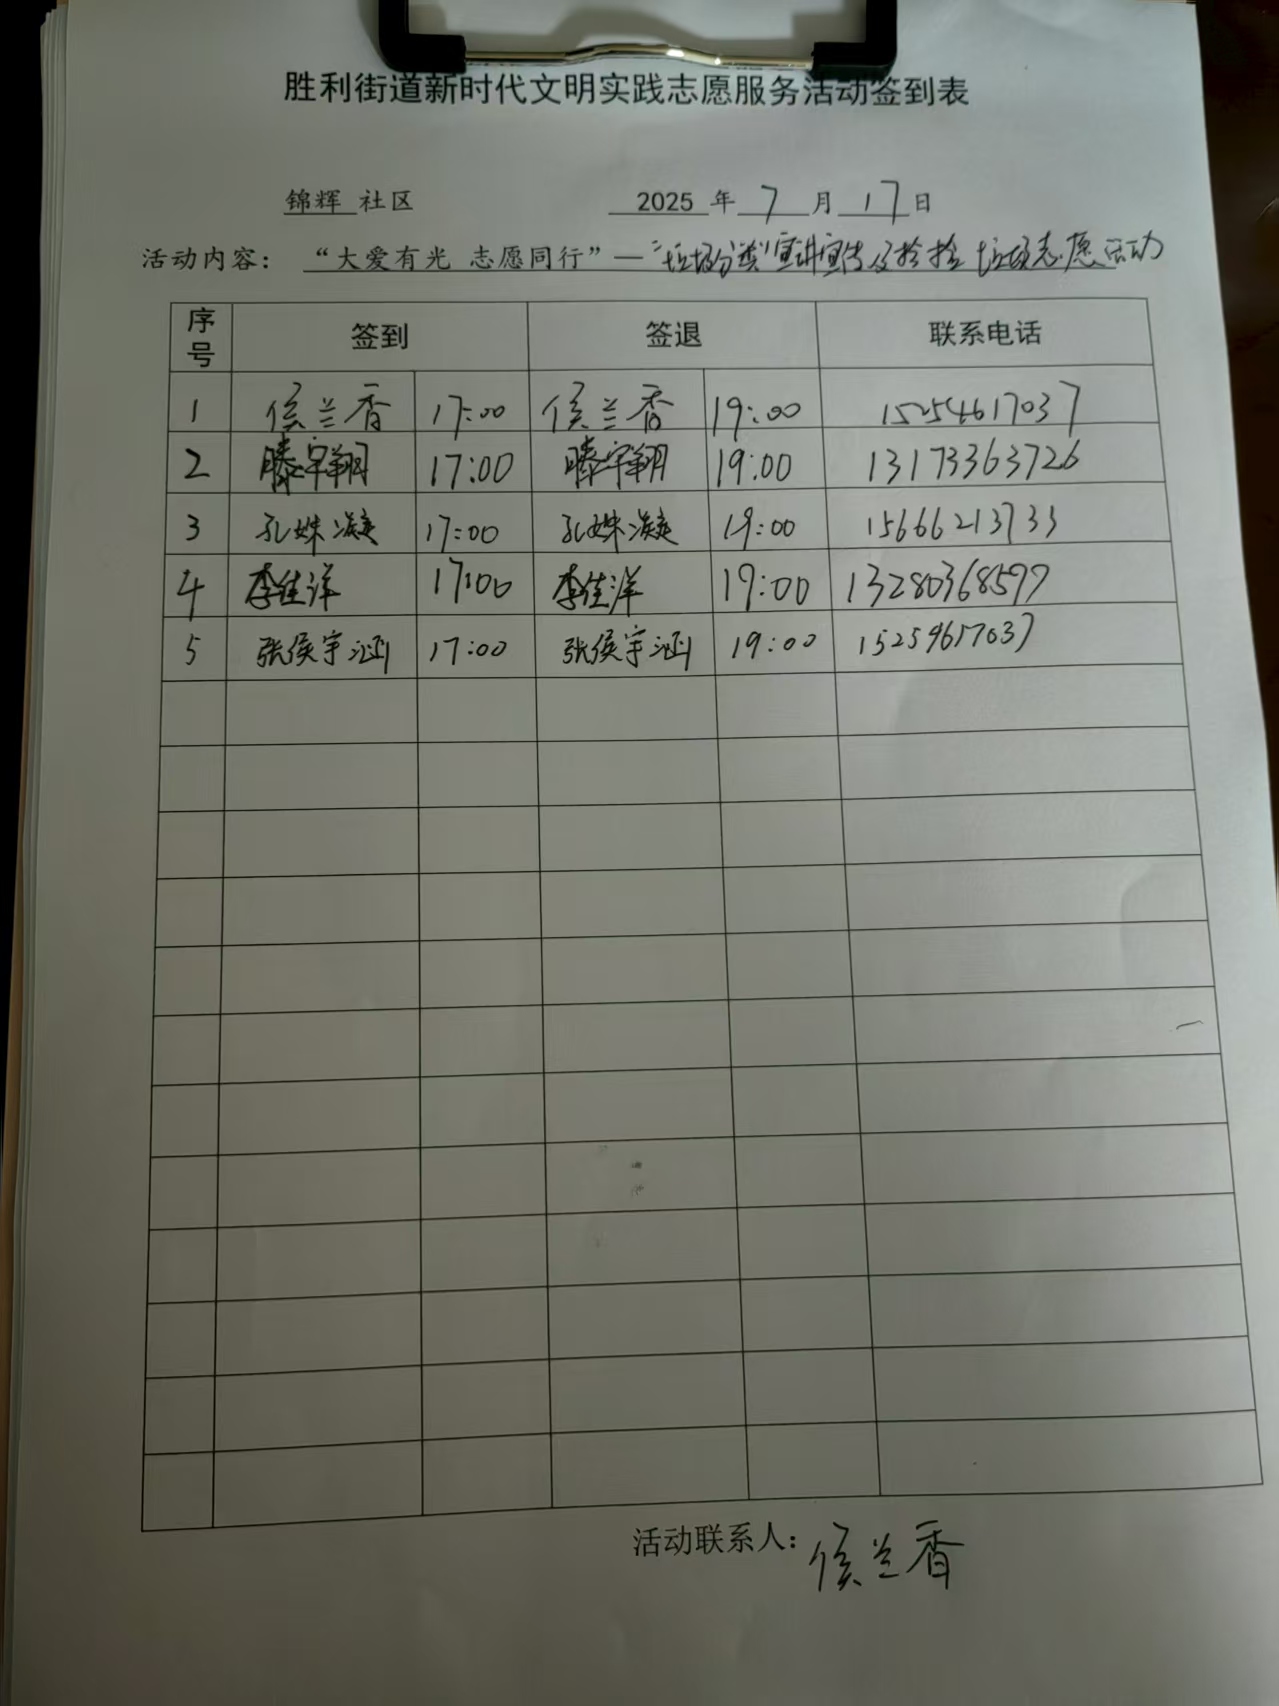 胜利街道新时代文明实践志愿服务活动签到表
锦辉 社区 2025 年 7 月 17 日
活动内容：“大爱有光 志愿同行”—“垃圾分类”宣讲宣传及捡拾垃圾志愿活动
序号 签到 签退 联系电话
1 侯兰香 17:00 侯兰香 19:00 15254617037
2 滕宇翔 17:00 滕宇翔 19:00 13173363726
3 孔姝凝 17:00 孔姝凝 19:00 15666213733
4 李佳洋 17:00 李佳洋 19:00 13280368597
5 张侯宇涵 17:00 张侯宇涵 19:00 15254617037
活动联系人：侯兰香